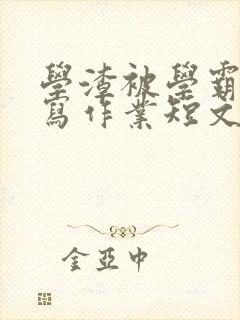 學渣被學霸
寫作業短文
金亞中